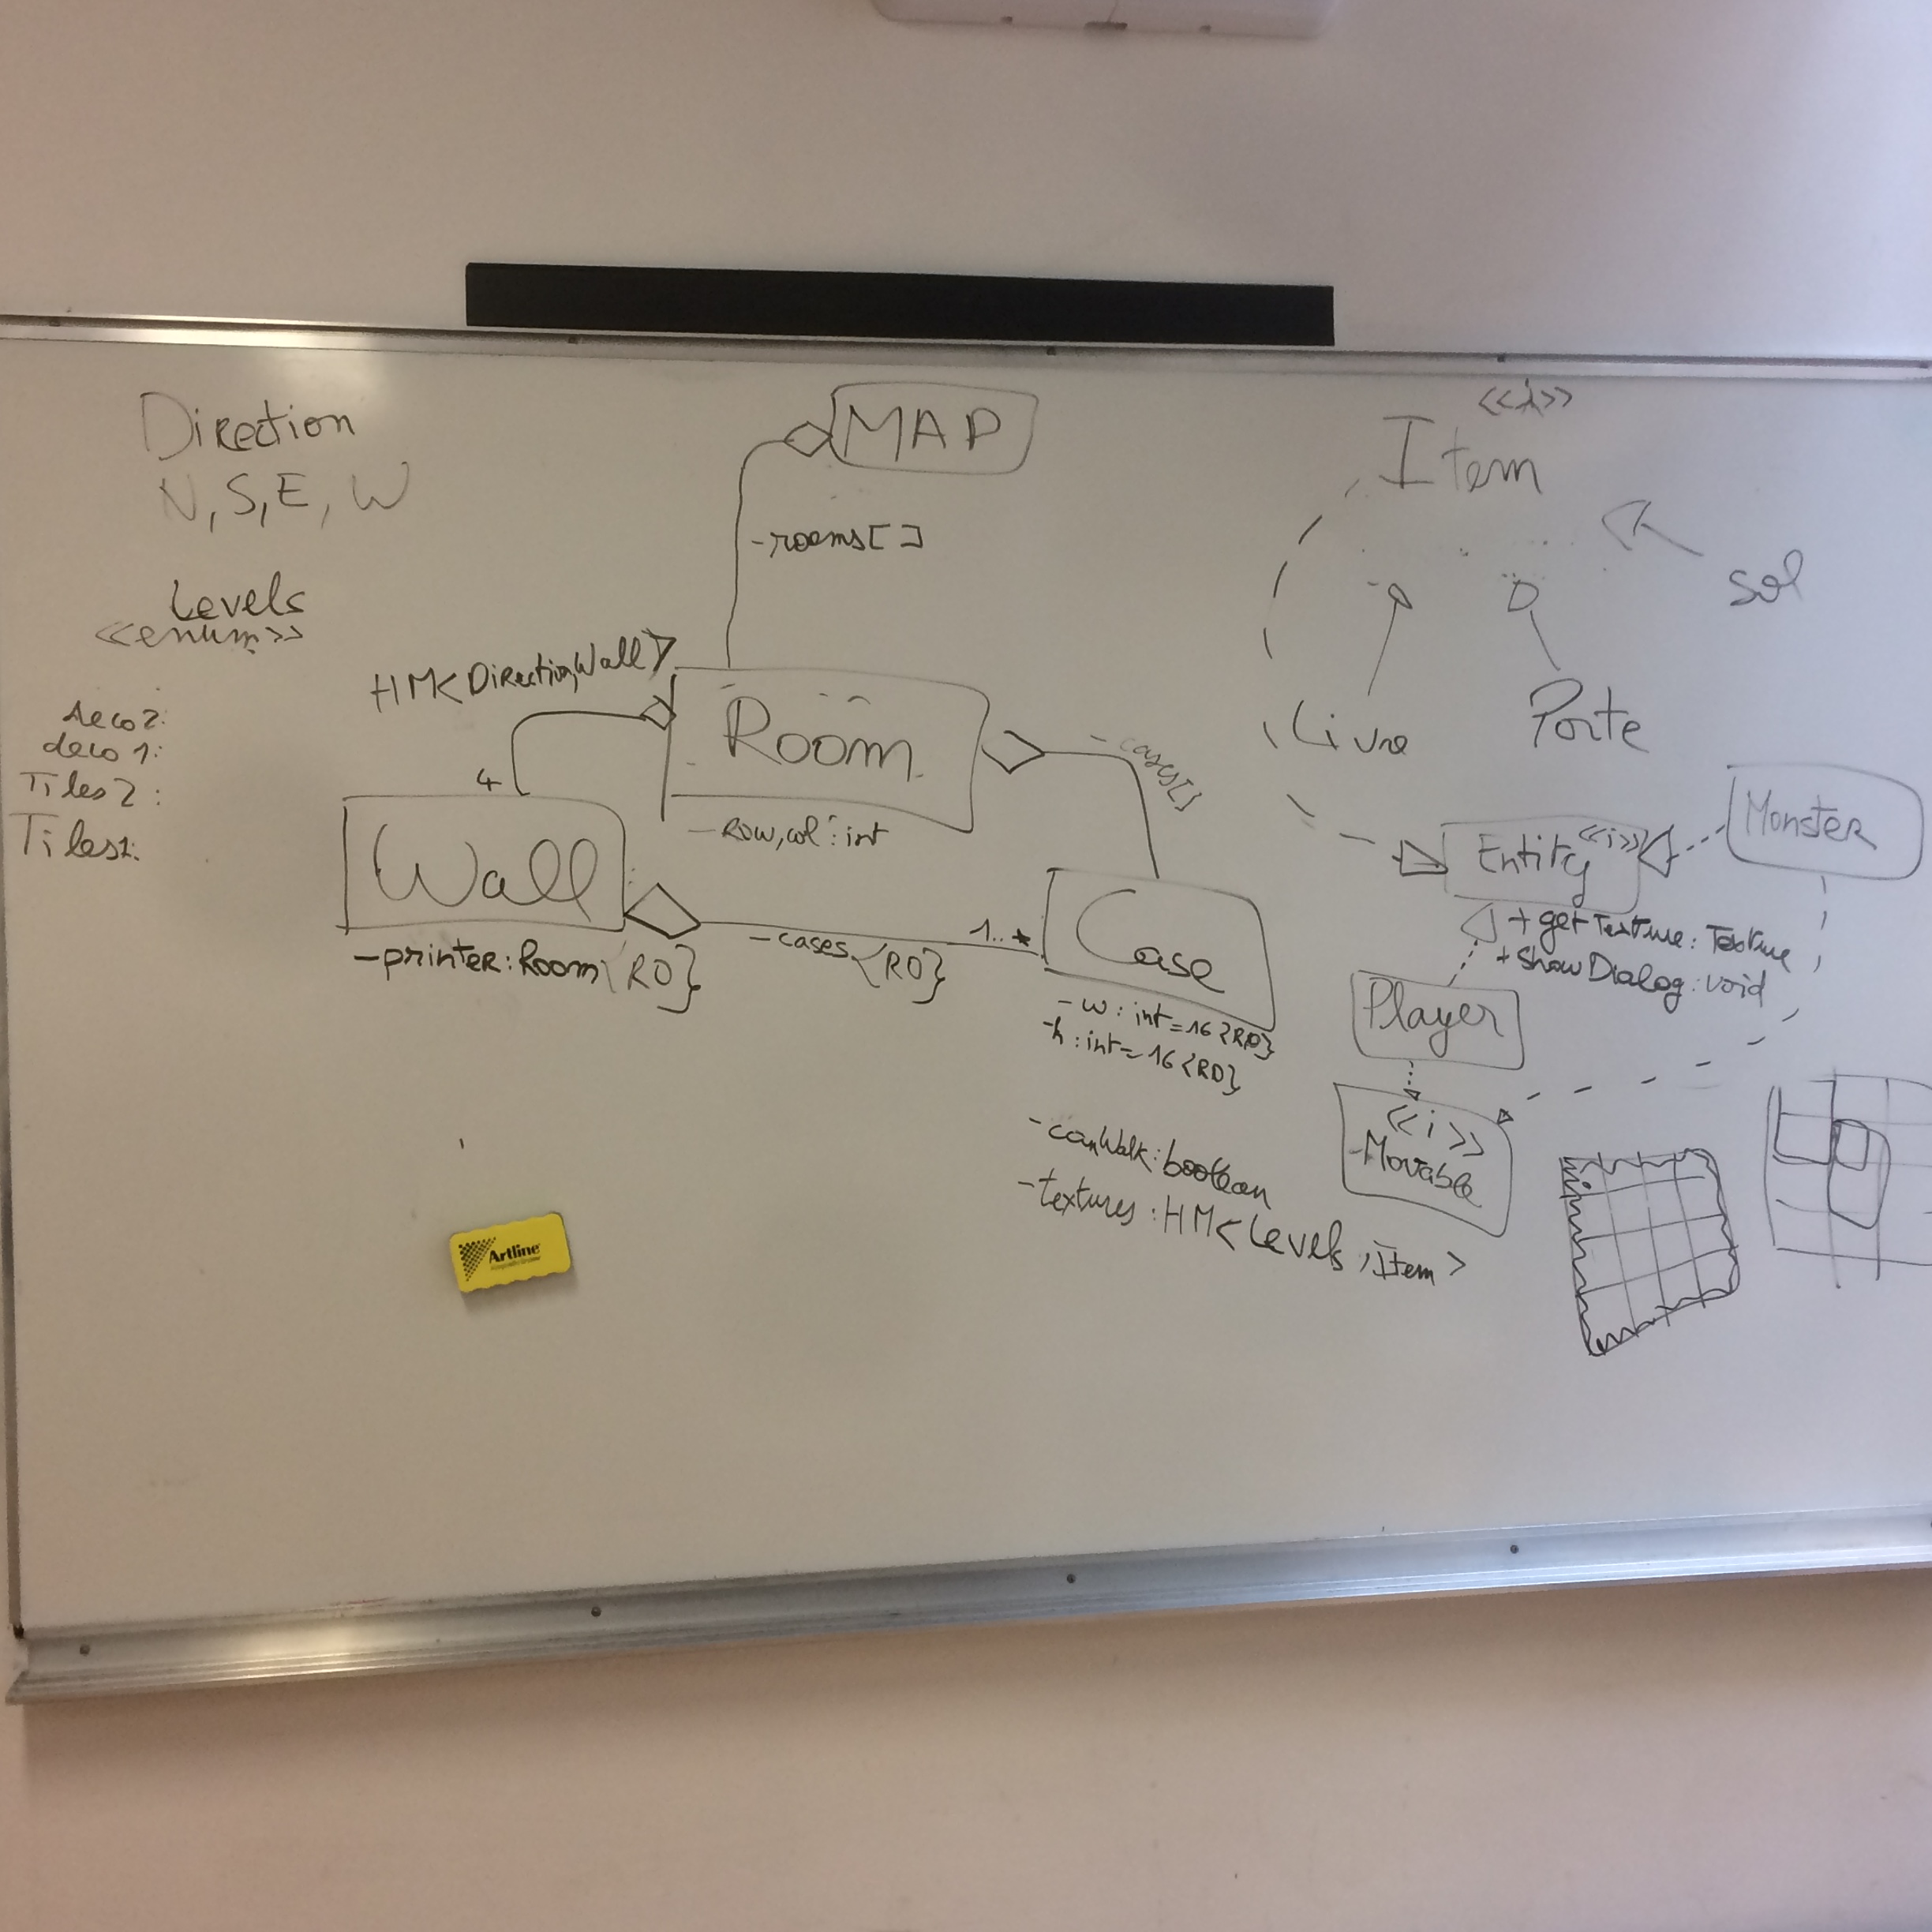 Direction
N, S, E, W
Levels
<<enum>>
deco 2:
deco 1:
Tiles 2 :
Tiles1:
MAP
-rooms[]
HM<Direction,Wall>
4
Room
- Row,col : int
- cases[]
Wall
-printer:Room{RO}
-cases {RO}
1..*
Case
- w : int=16{RO}
-h : int=16{RO}
-canWalk:boolean
-textures :HM<Levels ,Item>
<<i>>
Item
Sol
Livre
Porte
Monster
Entity <<i>>
+ getTexture: Texture
+ ShowDialog:void
Player
<<i>>
-Movable
Artline